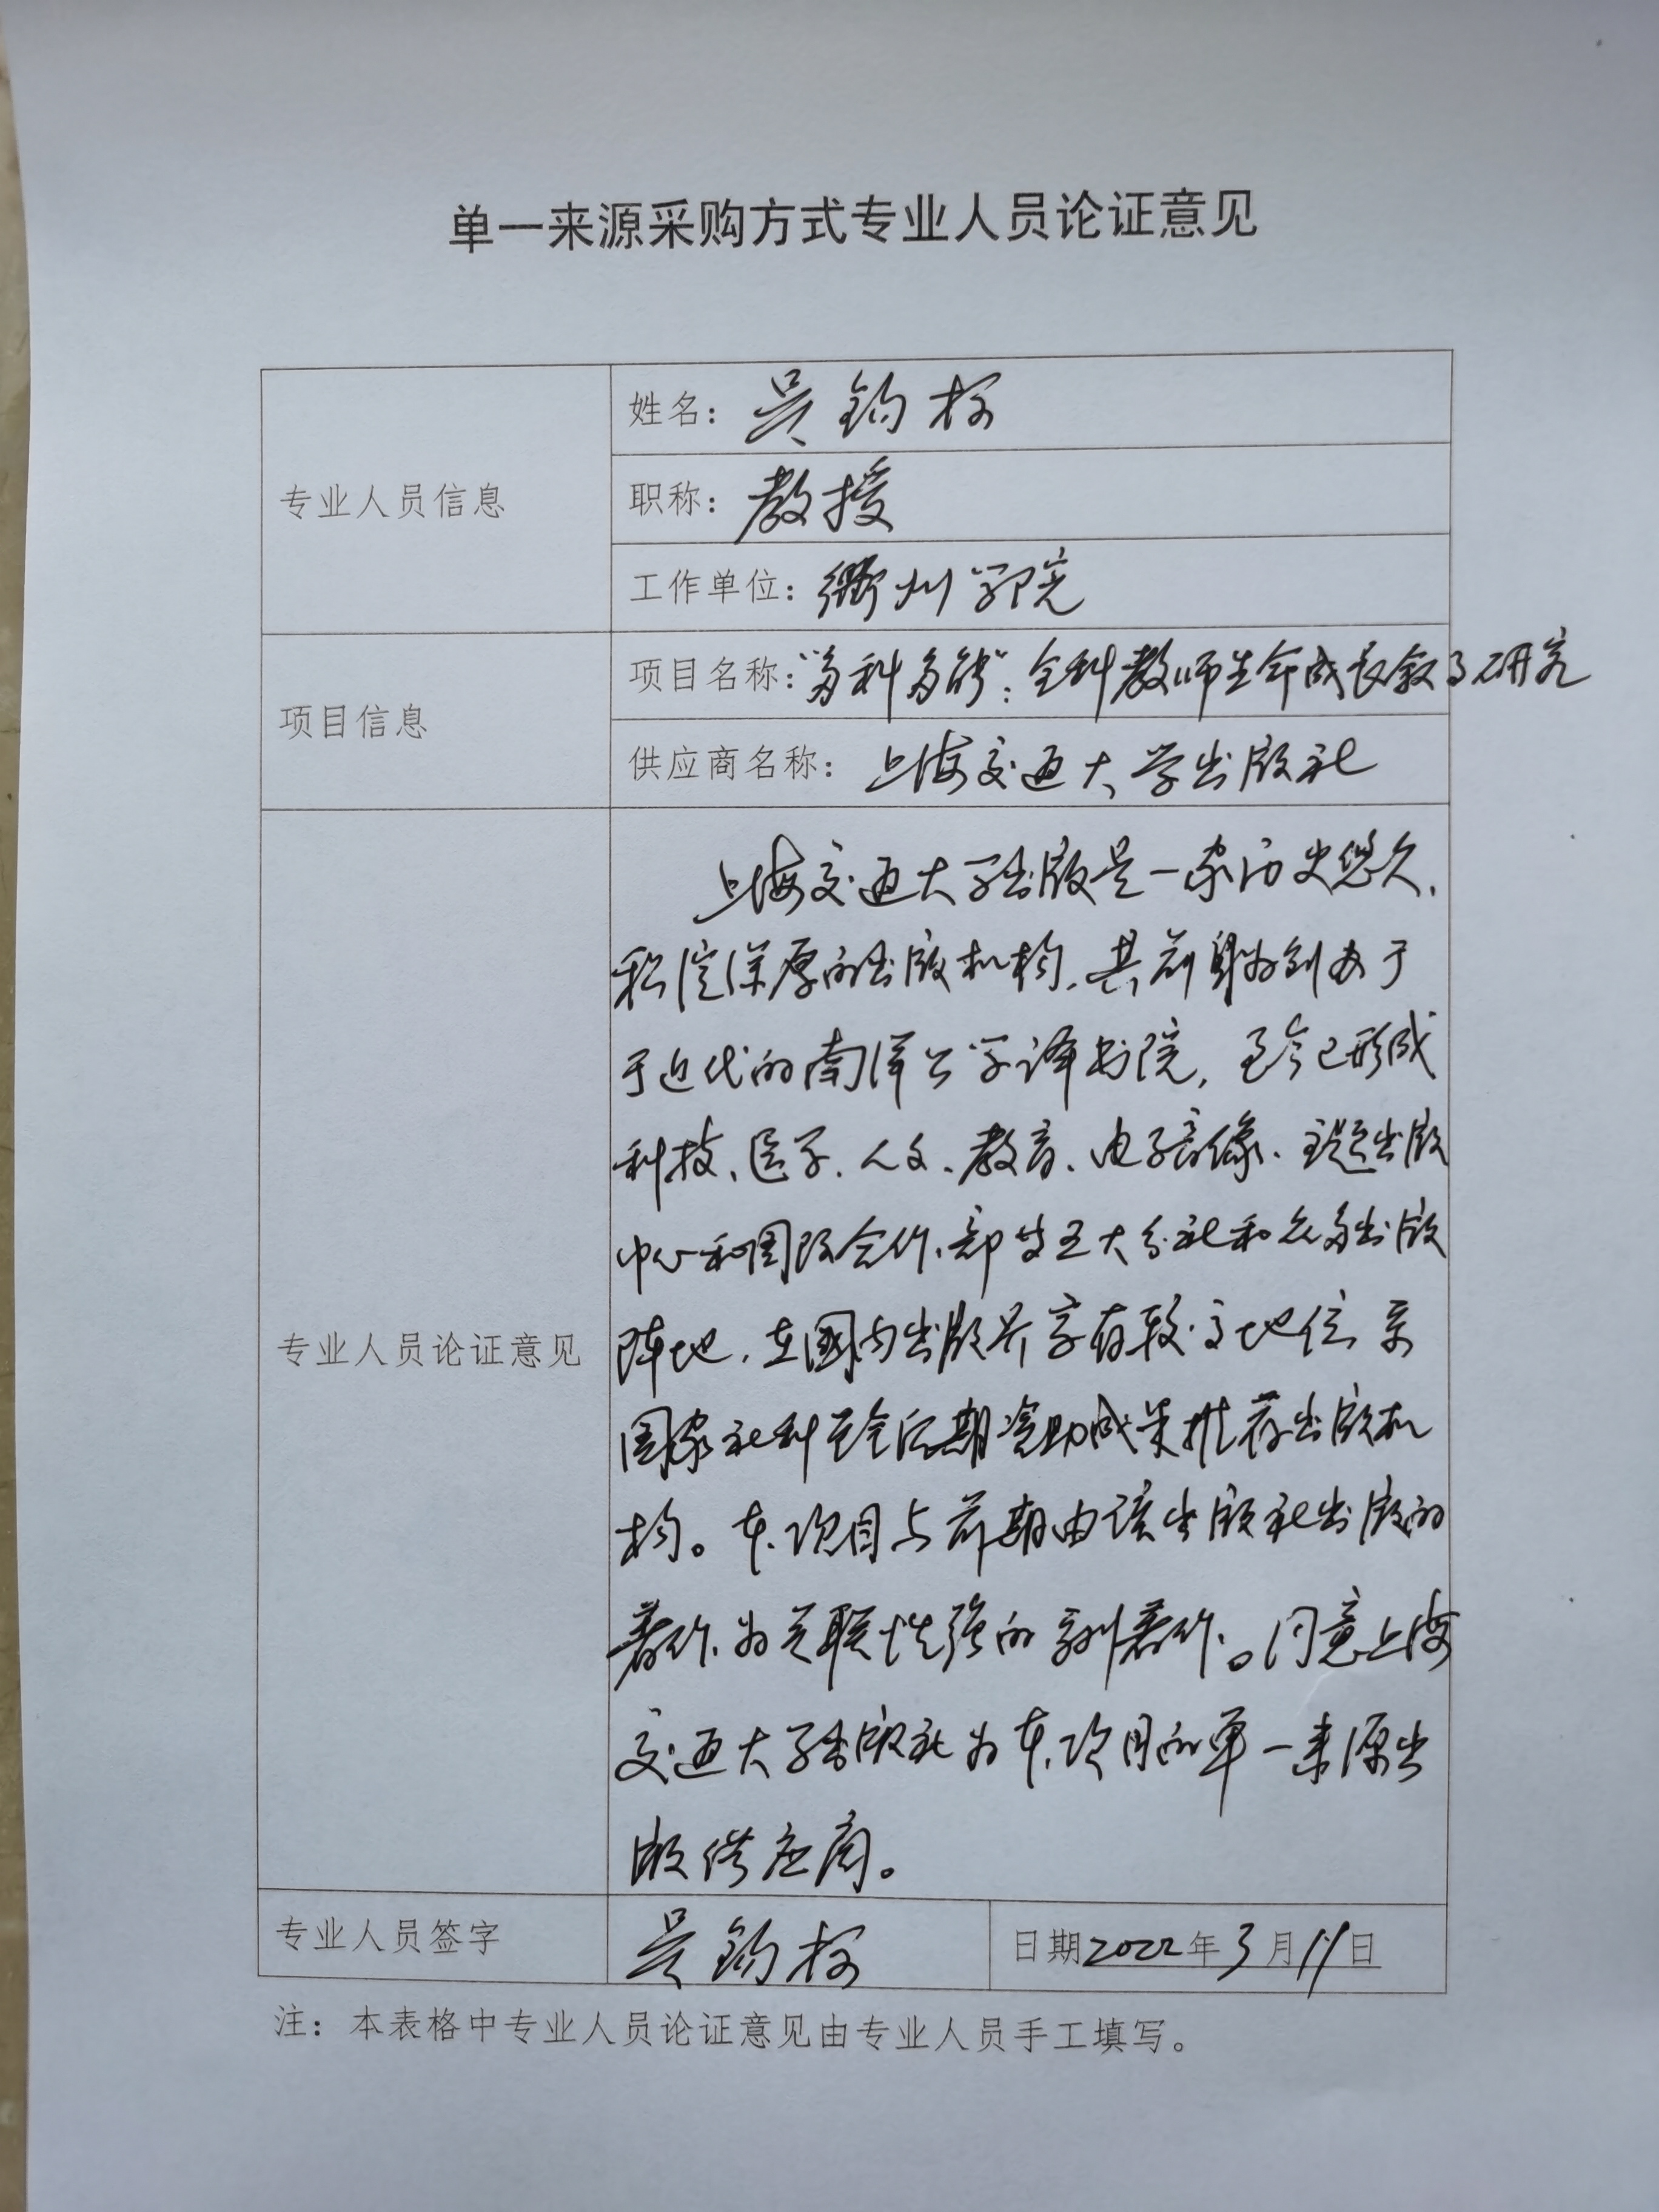 单一来源采购方式专业人员论证意见
专业人员信息
姓名：吴钧
职称：教授
工作单位：衢州学院
项目信息
项目名称：“多科多能”：全科教师生命成长叙事研究
供应商名称：上海交通大学出版社
专业人员论证意见
上海交通大学出版是一家历史悠久、
积淀深厚的出版机构，其前身为创办于
于近代的南洋公学译书院，至今已形成
科技、医学、人文、教育、电子音像、主题出版
中心和国际合作部等五大分社和众多出版
阵地，在国内出版界享有较高地位，系
国家社科基金后期资助成果推荐出版机
构。本项目与前期由该出版社出版的
著作为关联性强的系列著作。同意上海
交通大学出版社为本项目的单一来源出
版供应商。
专业人员签字
吴钧
日期2022年3月11日
注：本表格中专业人员论证意见由专业人员手工填写。